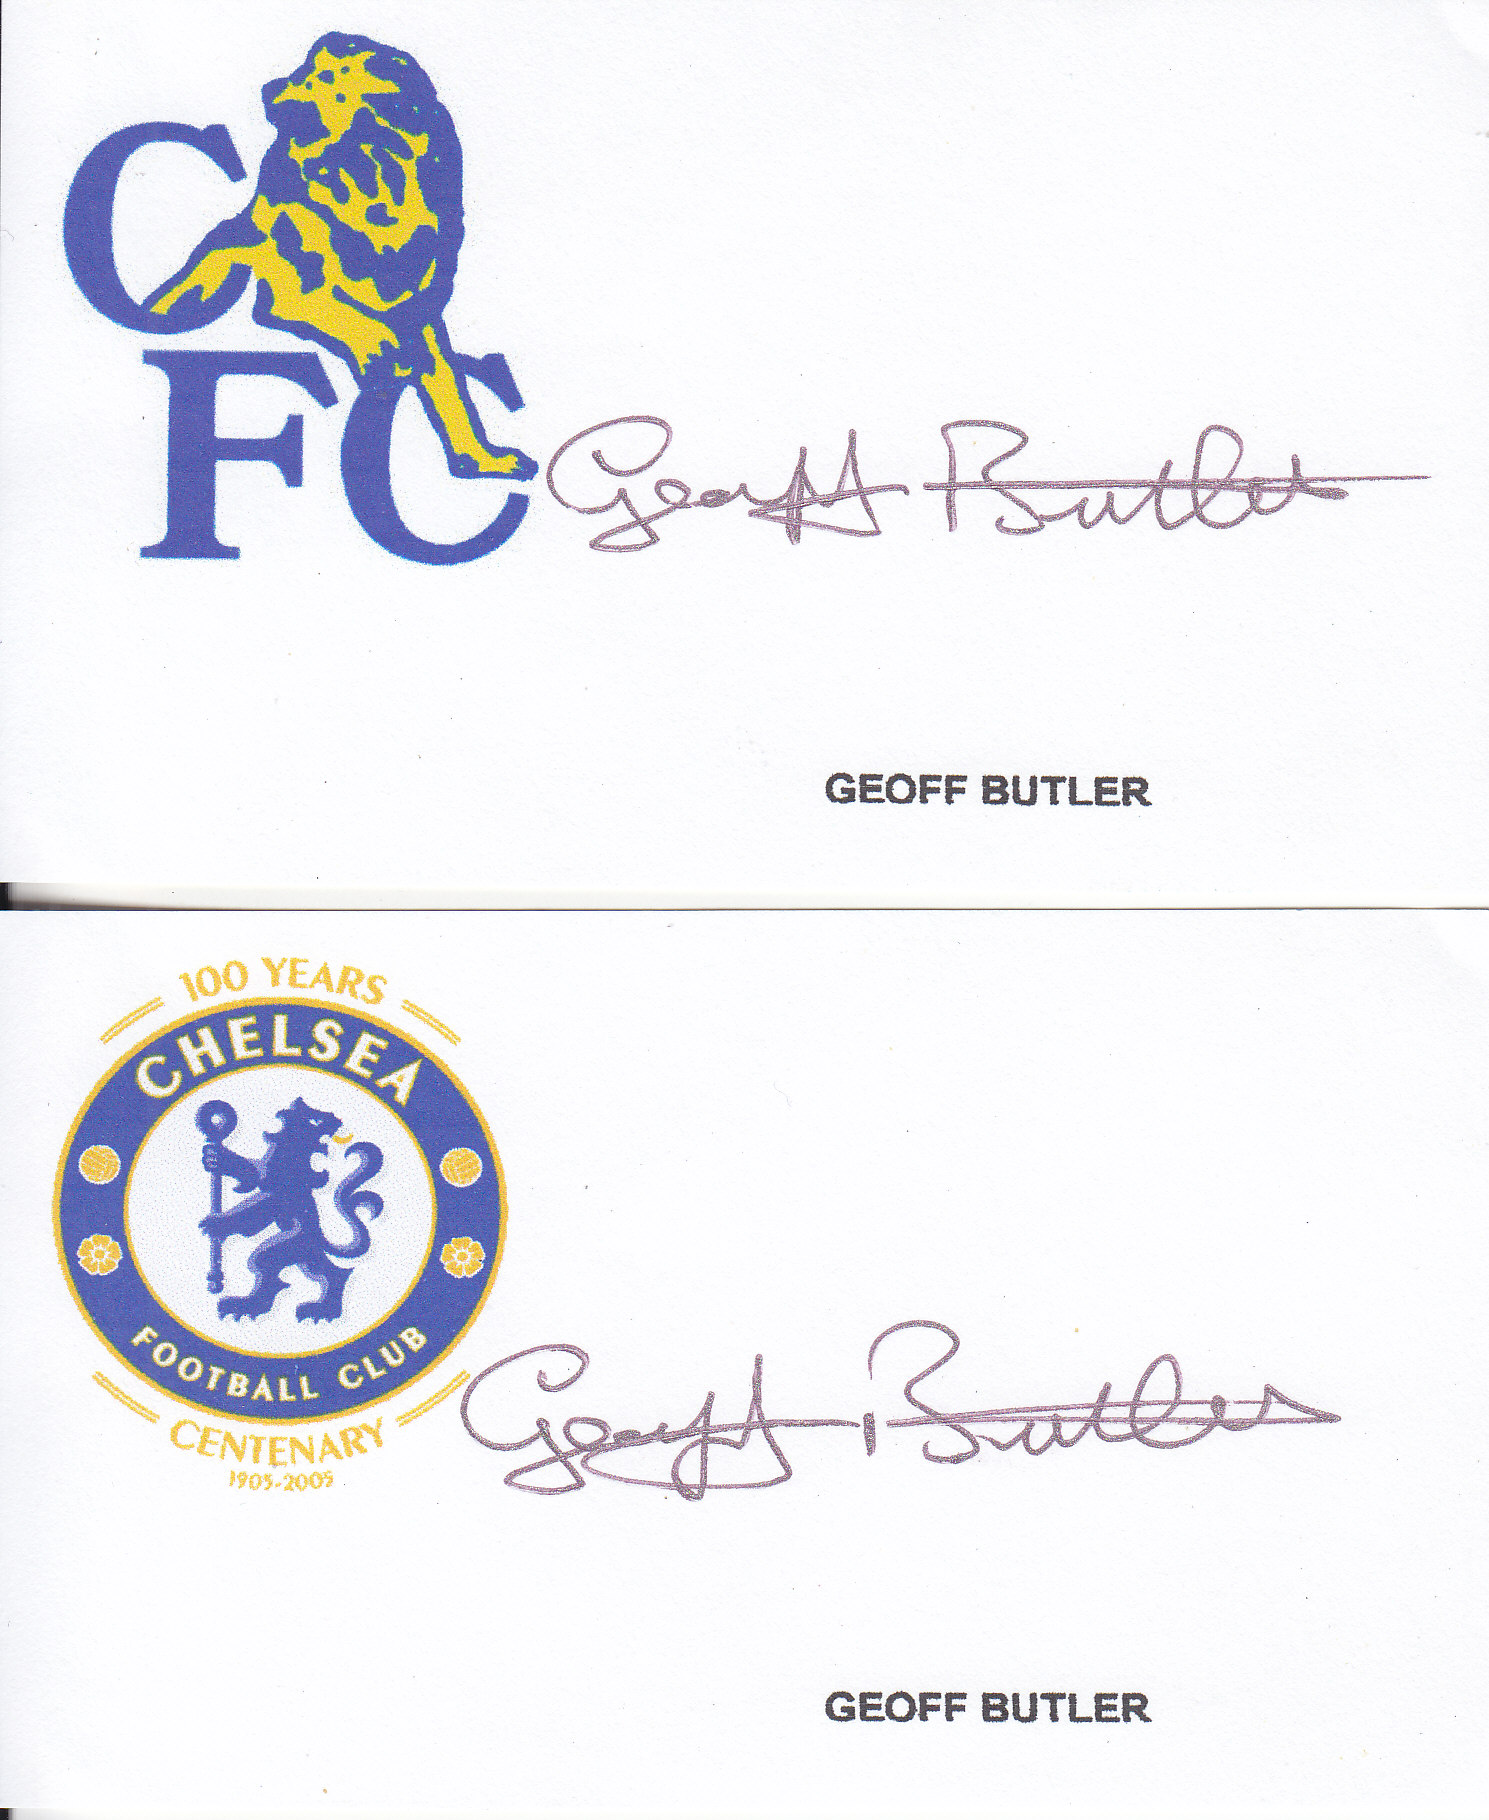 CFC
Geoff Butler
GEOFF BUTLER
100 YEARS
CHELSEA
FOOTBALL CLUB
CENTENARY
1905-2005
Geoff Butler
GEOFF BUTLER